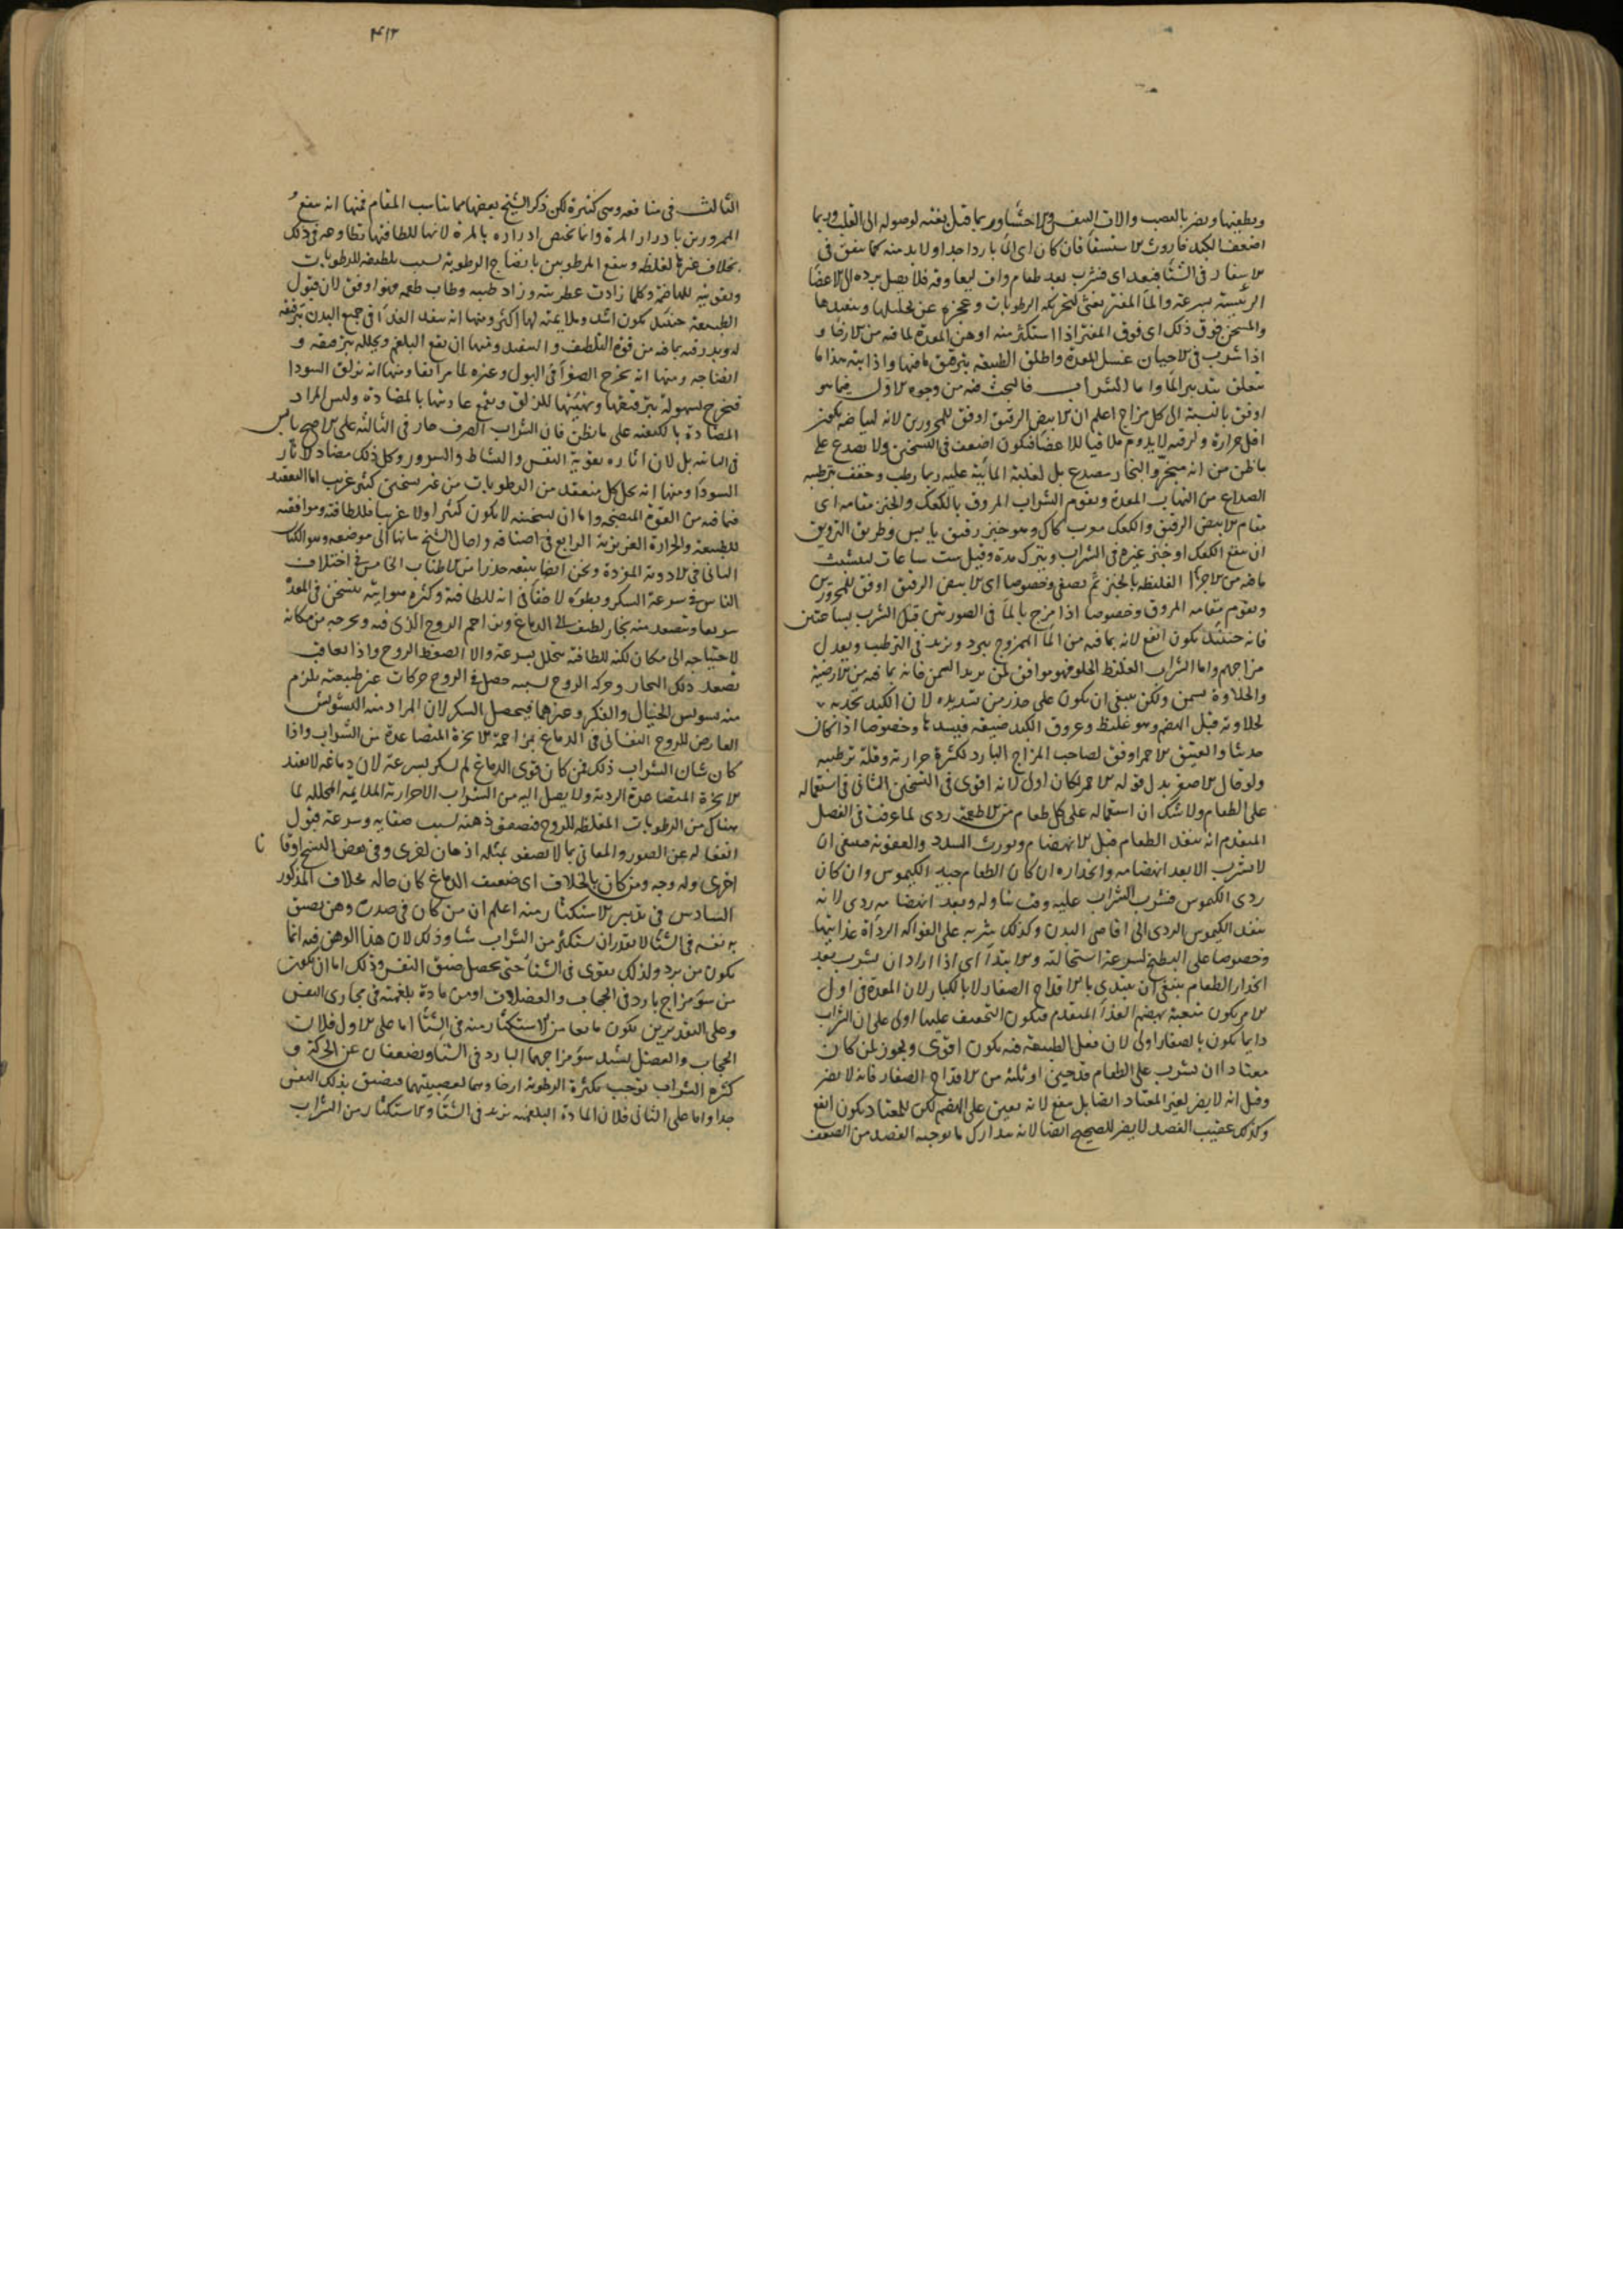 ويطفيها ويضر بالعصب والات النفس والاحشا وربما قتل بغتة لوصوله الى القلب وربما
اضعف الكبد فاورث الاستسقا فان كان اى الما باردا جدا ولا بد منه كما يتفق فى
الاسفار فى الشتا فبعد اى فشرب بعد طعام واف ليعاوقه فلا يصل برده الى الاعضا
الرئيسة بسرعة والما المفتر يغثى لتحريكه الرطوبات وعجزه عن تحليلها وتنفيذها
والمسخن فوق ذلك اى فوق المفتر اذا استكثر منه اوهن المعدة لما فيه من الارخا و
اذا شرب فى الاحيان غسل المعدة واطلق الطبيعة بترقيق ما فيها واذابته هذا ما
يتعلق بتدبير الما واما الشراب فالبحث فيه من وجوه الاول فيما هو
اوفق بالنسبة الى كل مزاج اعلم ان الابيض الرقيق اوفق للمحرورين لانه لبياضه يكون
اقل حرارة ولرقته لا يدوم ملاقيا للاعضا فيكون اضعف فى التسخين ولا يصدع على
ما ظن من انه مبخر والبخار مصدع بل لغلبة المائية عليه ربما رطب وخفف بترطيبه
الصداع من التهاب المعدة ويقوم الشراب المروق بالكعك والخبز مقامه اى
مقام الابيض الرقيق والكعك معرب كاك وهو خبز رقيق يابس وطريق الترويق
ان ينقع الكعك او خبز غيره فى الشراب ويترك مدة وقيل ست ساعات ليتشبث
ما فيه من الاجزا الغليظة بالخبز ثم يصفى وخصوصا اى الابيض الرقيق اوفق للمحرورين
ويقوم مقامه المروق وخصوصا اذا مزج بالما فى الصورتين قبل الشرب بساعتين
فانه حينئذ يكون انفع لانه بما فيه من الما الممزوج يبرد ويزيد فى الترطيب ويعدل
مزاجهم واما الشراب الغليظ الحلو فهو موافق لمن يريد السمن فانه بما فيه من الارضية
والحلاوة يسمن ولكن ينبغى ان يكون على حذر من تسديده لان الكبد تجذبه
لحلاوته قبل الهضم وهو غليظ وعروق الكبد ضيقة فيسدها وخصوصا اذا كان
حديثا والعتيق الاحمر اوفق لصاحب المزاج البارد لكثرة حرارته وقلة ترطيبه
ولو قال الاصفر بدل قوله الاحمر لكان اولى لانه اقوى فى التسخين الثانى فى استعماله
على الطعام ولا شك ان استعماله على كل طعام من الاطعمة ردى لما عرفت فى الفصل
المتقدم انه ينفذ الطعام قبل الانهضام ويورث السدد والعفونة فينبغى ان
لا يشرب الا بعد انهضامه وانحداره ان كان الطعام جيد الكيموس وان كان
ردى الكيموس فشرب الشراب عليه وقت تناوله وبعد انهضامه ردى لانه
ينفذ الكيموس الردى الى اقاصى البدن وكذلك شربه على الفواكه لرداة غذائيتها
وخصوصا على البطيخ لسرعة استحالته والابتدا اى اذا اراد ان يشرب بعد
انحدار الطعام ينبغى ان يبتدى بالاقداح الصغار لا بالكبار لان المعدة فى اول
الامر يكون متعبة بهضم الغذا المتقدم فيكون التخفيف عليها اولى على ان الشراب
دايما يكون بالصغار اولى لان فعل الطبيعة فيه يكون اقوى ويجوز لمن كان
معتادا ان يشرب على الطعام قدحين او ثلثة من الاقداح الصغار فانه لا يضر
وقيل انه لا يضر لغير المعتاد ايضا بل ينفع لانه يعين على الهضم لكن للمعتاد يكون انفع
وكذلك عقيب الفصد لا يضر للصحيح ايضا لانه يتدارك ما يوجبه الفصد من الضعف
٤١٣
الثالث فى منافعه وهى كثيرة لكن ذكر الشيخ بعضها مما يناسب المقام فمنها انه ينفع
الممرورين بادرار المرة وانما يختص ادراره بالمرة لانها للطافتها تطاوعه فى ذلك
بخلاف غيرها لغلظه وينفع المرطوبين بانضاج الرطوبة لسبب تلطيفه للرطوبات
وتقويته للهاضمة وكلما زادت عطريته وزاد طيبه وطاب طعمه فهو اوفق لان قبول
الطبيعة حينئذ يكون اشد وملايمته لها اكثر ومنها انه ينفذ الغذا فى جميع البدن بترقيقه
له وبدرقته بما فيه من قوة التلطيف والتنفيذ ومنها ان يقطع البلغم ويحلله بترقيقه و
انضاجه ومنها انه يخرج الصفرا فى البول وغيره لما مر آنفا ومنها انه يزلق السودا
فتخرج بسهولة بترقيقها وتهيئتها للزلق ويقمع عاديتها بالمضادة وليس المراد
المضادة بالكيفية على ما يظن فان الشراب الصرف حار فى الثالثة على الاصح يابس
فى الثانية بل لان اثاره تقوية النفس والنشاط والسرور وكل ذلك مضاد لاثار
السودا ومنها انه يحل كل منعقد من الرطوبات من غير تسخين كثير غريب اما التعقد
فبما فيه من القوة المنضجة واما ان تسخينه لا يكون كثيرا ولا غريبا فللطافته وموافقته
للطبيعة والحرارة الغريزية الرابع فى اصنافه واحال الشيخ بيانها الى موضعه وهو الكتاب
الثانى فى الادوية المفردة ونحن ايضا نتبعه حذرا من الاطناب الخامس فى اختلاف
الناس فى سرعة السكر وبطؤه لا خفا فى انه للطافته وكثرة هوائيته يتسخن فى المعدة
سريعا ويتصعد منه بخار لطيف الى الدماغ ويزاحم الروح الذى فيه ويحرجه من مكانه
لاحتياجه الى مكان لكنه للطافته يتحلل بسرعة والا انضغط الروح واذا تعاقب
تصعد ذلك البخار وحركة الروح بسببه حصل فى الروح حركات غير طبيعية يلزم
منه تشويش الخيال والفكر وغيرهما فيحصل السكر لان المراد منه التشويش
العارض للروح النفسانى فى الدماغ بمزاحمة الابخرة المتصاعدة من الشراب واذا
كان شان الشراب ذلك فمن كان قوى الدماغ لم يسكر بسرعة لان دماغه لا يقبل
الابخرة المتصاعدة الردية ولا يصل اليه من الشراب الا حرارته الملايمة المحللة لما
هناك من الرطوبات المغلظة للروح فيصفو ذهنه بسبب صفايه وسرعة قبول
انفعاله عن الصور والمعانى بما لا يصفو بمثله اذهان اخرى وفى بعض النسخ اوقاتا
اخرى وله وجه ومن كان بالخلاف اى ضعيف الدماغ كان حاله بخلاف المذكور
السادس فى تدبير الاستكثار منه اعلم ان من كان فى صدره وهن يضيق
به نفسه فى الشتا لا يقدر ان يستكثر من الشراب شيا وذلك لان هذا الوهن فيه انما
يكون من برد ولذلك يقوى فى الشتا حتى يحصل ضيق النفس وذلك اما ان يكون
من سؤ مزاج بارد فى الحجاب والعضلات او من مادة بلغمية فى مجارى النفس
وعلى التقديرين يكون مانعا من الاستكثار منه فى الشتا اما على الاول فلان
الحجاب والعضل يشتد سؤ مزاجهما البارد فى الشتا ويضعفان عن الحركة و
كثرة الشراب توجب بكثرة الرطوبة ارخاوهما لعصبيتهما فيضيق بذلك النفس
جدا واما على الثانى فلان المادة البلغمية تزيد فى الشتا والاستكثار من الشراب